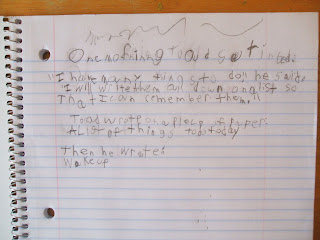 One morning Toad sat in bed:
"I have many things to do" he said.
I will write them all down on a list so
that I can remember them."
Toad wrote on a piece of paper:
A List of things to do today
Then he wrote:
Wake up